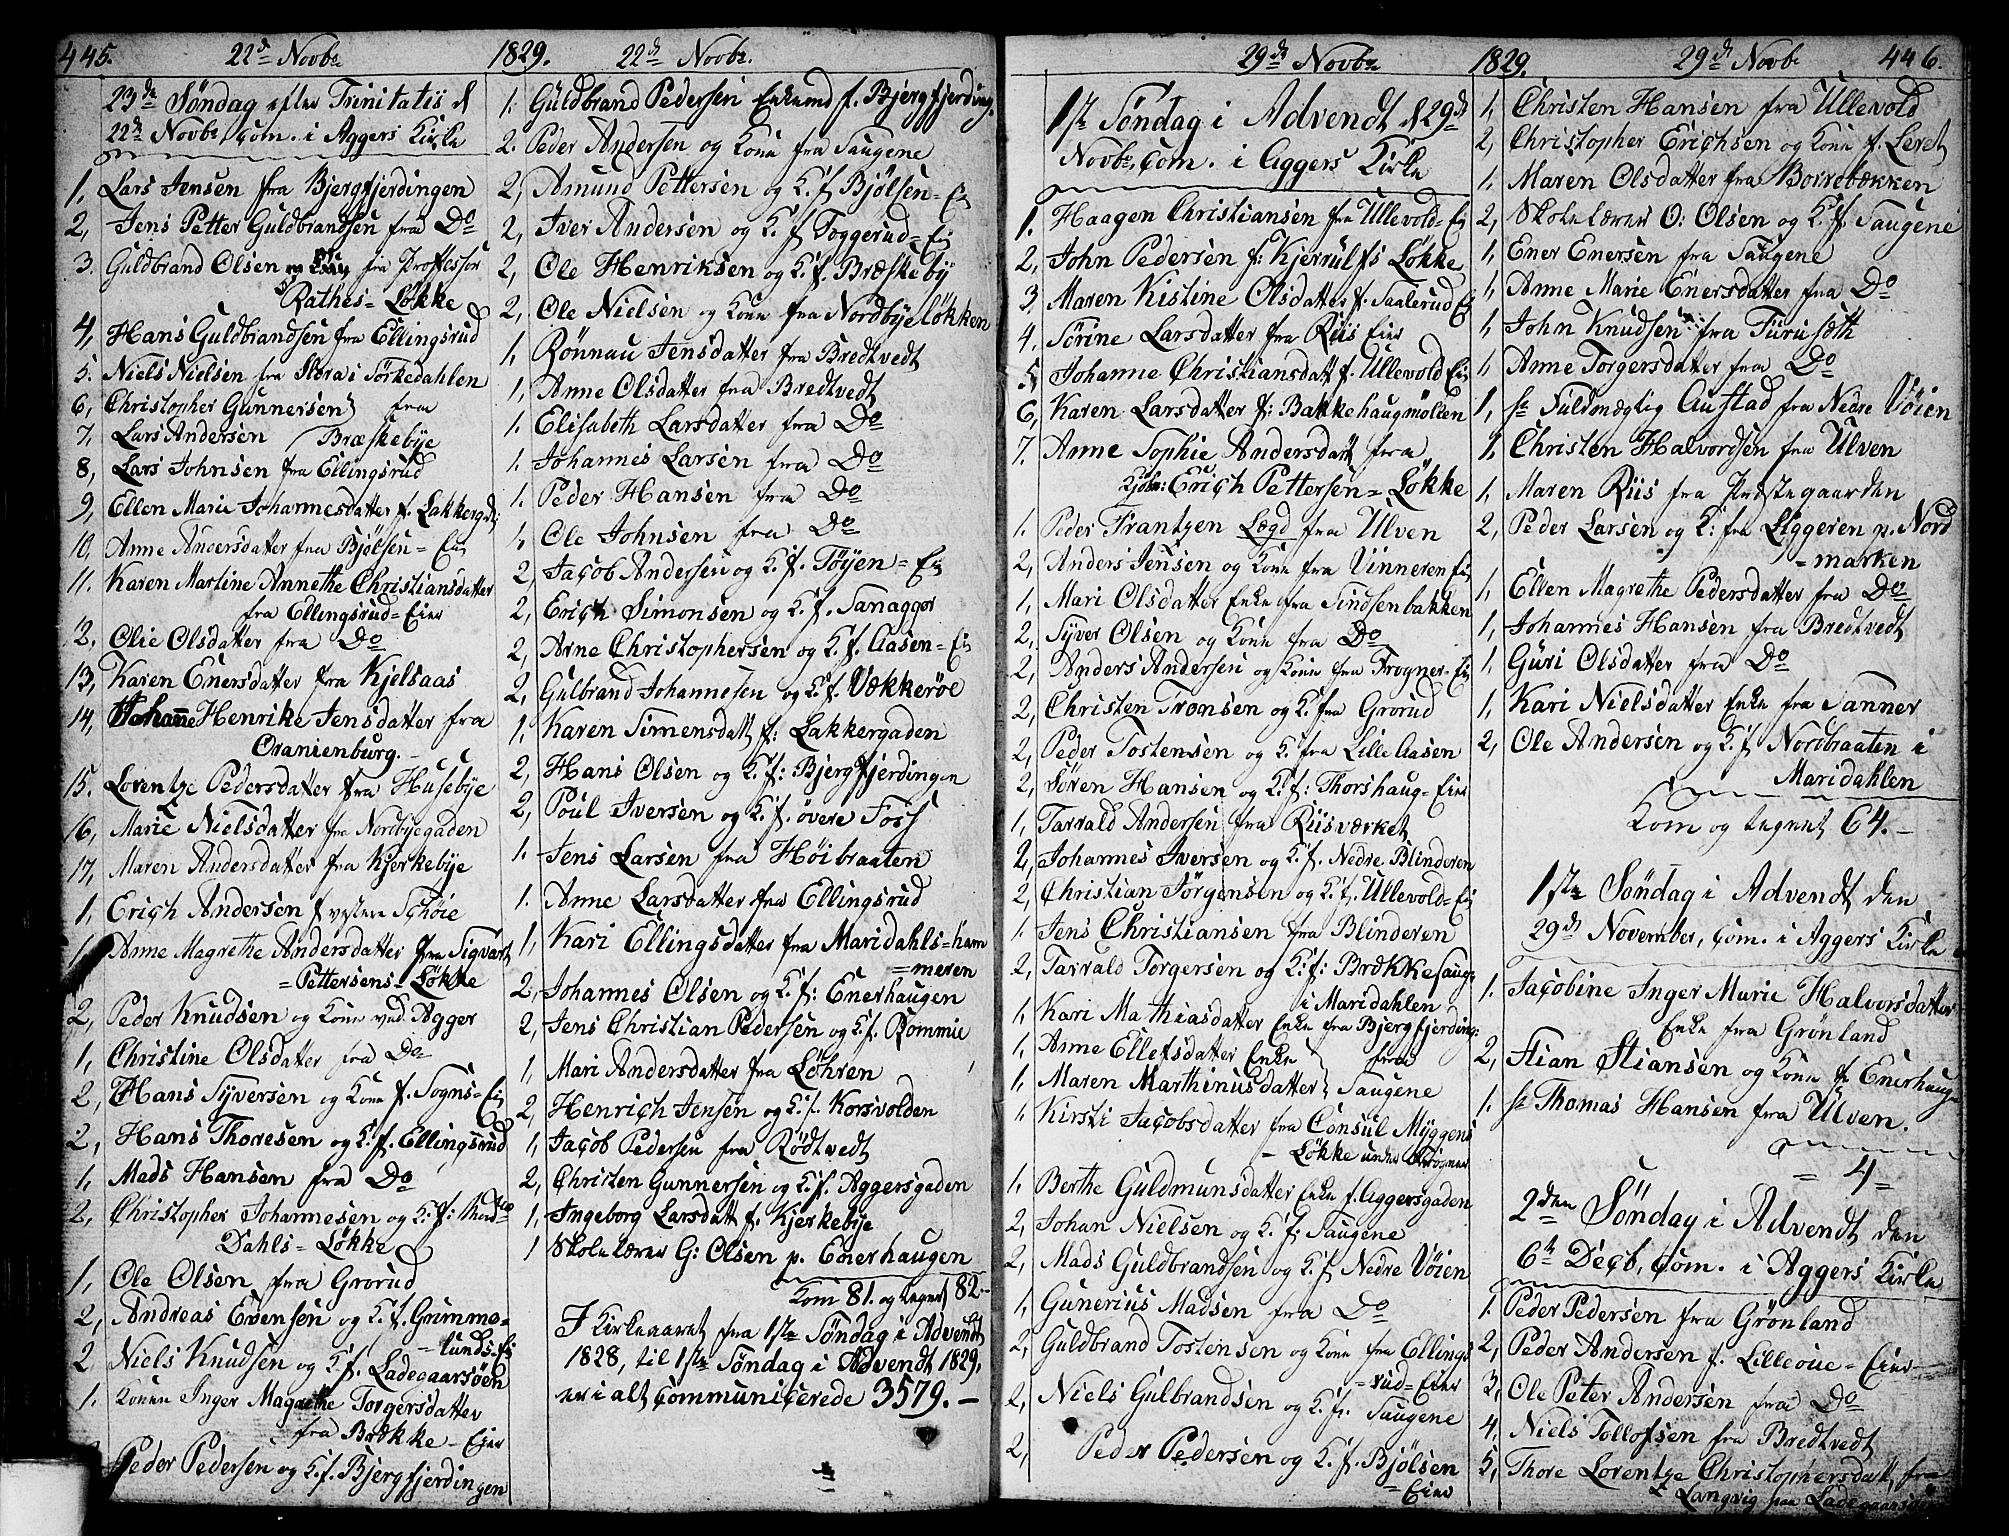 445.
22de Novbr
1829.
22de Novbr.
23de Søndag efter Trinitatis d
22de Novbr, Com. i Aggers Kirke
1. Lars Jensen fra Bjergfjerdingen
2, Jens Petter Guldbrandsen fra Do
3. Guldbrand Olsen fra Professor
Rathes=Løkke
4, Hans Guldbrandsen fra Ellingsrud
5. Niels Nielsen fra Skora i Sørkedahlen
6, Christopher Gunnersen fra
7, Lars Andersen Bræskebye
8, Lars Johnsen fra Ellingsrud
9, Ellen Marie Johannesdatter f. Lakkerg.d.
10, Anne Andersdatter fra Bjølsen=Eie
11. Karen Martine Annethe Christiansdatter
fra Ellingsrud=Eier
12. Olie Olsdatter fra Do
13, Karen Enersdatter fra Kjelsaas
14, Johanne Henrike Jensdatter fra
Oranienburg.
15. Lorentze Pedersdatter fra Husebye
16, Marie Nielsdatter fra Nordbyegaden
17, Maren Andersdatter fra Kjerkebye
1, Erich Andersen f vestere Schøie
1, Anne Magrethe Andersdatter fra Sigvart
=Pettersens=Løkke
2, Peder Knudsen og Kone ved Agger
1, Christine Olsdatter fra Do
2, Hans Syversen og Kone f. Sogns=Eie
2, Hans Thoresen og K. f. Ellingsrud
1, Mads Hansen fra Do
2, Christopher Johannesen og K. f:
Dahls=Løkke
1, Ole Olsen fra Grorud
2, Andreas Evensen og K. f. Grimme=
=lunds=Ei
2 Niels Knudsen og K. f. Ladegaarsøen
1. Konen Inger Magrethe Torgersdatter
fra Brække=Eier
Peder Pedersen og K. f. Bjergfjerdingen
1. Guldbrand Pedersen Enkemd f. Bjergfjerding.
2. Peder Andersen og Kone fra Saugene
2, Amund Pettersen og K. f Bjølsen=Ei
2, Iver Andersen og K. f Toggerud=Ei
2, Ole Henriksen og K. f. Bræskeby
2, Ole Nielsen og Kone fra Nordbyeløkken
1, Rønnau Jensdatter fra Bredtvedt
1, Anne Olsdatter fra Bredtvedt
1. Elisabeth Larsdatter fra Do
1. Johannes Larsen fra Do
1. Peder Hansen fra Do
1, Ole Johnsen fra Do
2, Jacob Andersen og K. f. Tøyen=Ei
2, Erich Simonsen og K. f. Sanagger
2, Arne Christophersen og K. f. Aasen=Ei
2, Gulbrand Johannesen og K. f. Vækkerøe
1, Karen Simensdatt f. Lakkergaden
2, Hans Olsen og K. f: Bjergfjerdingen
2, Poul Iversen og K. f. øvere Foss
1. Jens Larsen fra Høibraaten
1. Anne Larsdatter fra Ellingsrud
1, Kari Ellingsdatter fra Maridahls=ham
=meren
2, Johannes Olsen og K. f: Enerhaugen
2, Jens Christian Pedersen og K. f. Rommie
1, Mari Andersdatter fra Løhren
2, Henrich Jensen og K. f. Korsvolden
1, Jacob Pedersen fra Rødtvedt
2, Christen Gunnersen og K. f. Aggersgaden
1, Ingeborg Larsdatt f. Kjerkebye
1 Skolelærer G: Olsen p. Enerhaugen
Kom 81. og tegnet 82.
I Kirkeaaret fra 1ste Søndag i Advendt
1828, til 1ste Søndag i Advendt 1829,
er i alt Communicerede 3579.—
29de Novbr
1829.
29de Novb.
446.
1ste Søndag i Advendt d 29de
Novbr, Com. i Aggers Kirke
1. Haagen Christiansen fra Ullevold=Ei
2, John Pedersen f: Kjerrulfs Løkke
3. Maren Kistine Olsdatter f. Saalerud Ei
4. Sørine Larsdatter fra Riis Eier
5 Johanne Christiansdatt f. Ullevold Ei
6, Karen Larsdatter f: Bakkehaugmolden
7. Anne Sophie Andersdatt fra
Kjøbm: Erich Pettersen=Løkke
1. Peder Frantzen Lægd fra Ulven
2, Anders Jensen og Kone fra Vinneren Ei
1, Mari Olsdatter Enke fra Sindsenbakken
2, Syver Olsen og Kone fra Do
2, Anders Andersen og Kone fra Frogner=Ei
2, Christen Tronsen og K. fra Grorud
2, Peder Tostensen og K. fra Lille Aasen
2, Søren Hansen og K. f: Thorshaug=Eier
1, Tarrald Andersen fra Riisværket
2, Johannes Iversen og K. f. Nedre Blinderen
2, Christian Jørgensen og K. f. Ullevold=Ei
1. Jens Christiansen fra Blinderen
2, Tarrald Torgersen og K. f: Brække Saug
i Maridahlen
1, Kari Mathiasdatter Enke fra Bjergfjerding:
1, Anne Ellefsdatter Enke fra
1, Maren Marthinusdatter Saugene
1, Kirsti Jacobsdatter fra Consul Myggens
=Løkke under Frogner
1. Berthe Guldmunsdatter Enke f. Aggersgaden
2, Johan Nielsen og K. f. Saugene
2, Mads Guldbrandsen og K. f Nedre Vøien
1, Gunerius Madsen fra Do
2, Guldbrand Tostensen og Kone fra Ellings
=rud=Eier
2, Niels Gulbrandsen og K. f. Saugene
2, Peder Pedersen og K. f. Bjølsen
=Eier
1, Christen Hansen fra Ullevold
2, Christopher Erichsen og Kone f. Leret
1, Maren Olsdatter fra Borrebækken
2, Skolelærer O: Olsen og K. f. Saugene
1, Ener Enersen fra Saugene
1, Anne Marie Enersdatter fra Do
1, John Knudsen fra Furusæth
1, Anne Torgersdatter fra Do
1, Sr Fuldmægtig Austad fra Nedre Vøien
1, Christen Halvordsen fra Ulven
1, Maren Riis fra Præstegaarden
2, Peder Larsen og K: fra Liggeren p. Nord
=marken
1, Ellen Magrethe Pedersdatter fra Do
1, Johannes Hansen fra Bredtvedt
1, Guri Olsdatter fra Do
1, Kari Nielsdatter Enke fra Sanner
2, Ole Andersen og K. f Nordbraaten i
Maridahlen
Kom og tegnet 64.—
1ste Søndag i Advendt den
29de November, Com. i Aggers Kirke
1. Jacobine Inger Marie Halvorsdatter
Enke fra Grønland
2, Stian Stiansen og Kone f. Enerhauge
1. Sr Thomas Hansen fra Ulven.
=4=
2den Søndag i Advendt den
6te Decb, Com. i Aggers Kirke
1. Peder Pedersen fra Grønland
2, Peder Andersen f. Lilleoue=Eier
3, Ole Peter Andersen fra Do
4, Niels Tollofsen fra Bredtvedt
5, Thore Lorentze Christophersdatt, fra
Langvig paa Ladegaarsøen